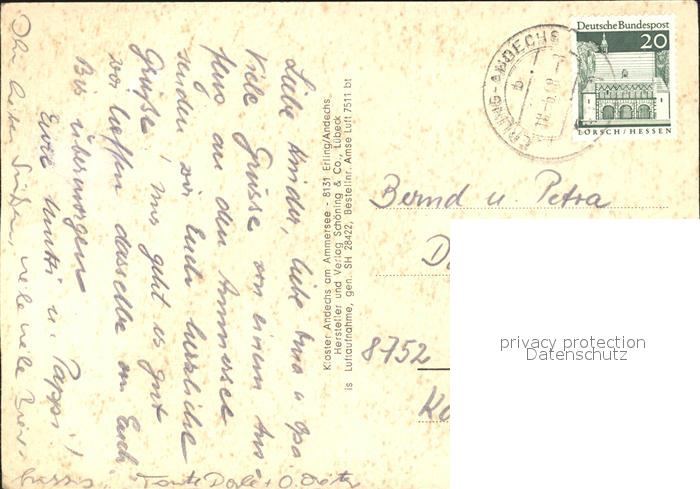 Liebe Kinder, liebe Oma u Opa
Viele Grüsse von einem Aus-
flug an den Ammersee
senden wir Euch herzliche
Grüße, uns geht es gut
wir hoffen dasselbe von Euch
Bis übermorgen
Eure Mutti u. Pappi!
viele viele
Tante
Kloster Andechs am Ammersee - 8131 Erling/Andechs
Hersteller und Verlag Schöning & Co., Lübeck
is Luftaufnahme, gen. SH 28422, Bestellnr. Amse Luft 7511 bt
ERLING-ANDECHS
Deutsche Bundespost
20
LORSCH/HESSEN
Bernd u. Petra
8752
privacy protection
Datenschutz